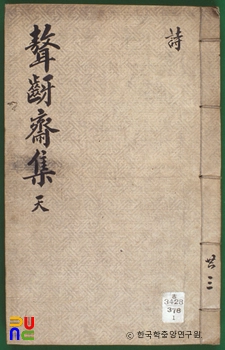 詩
聱齖齋集 天
共三
3428
378
1
© 한국학중앙연구원